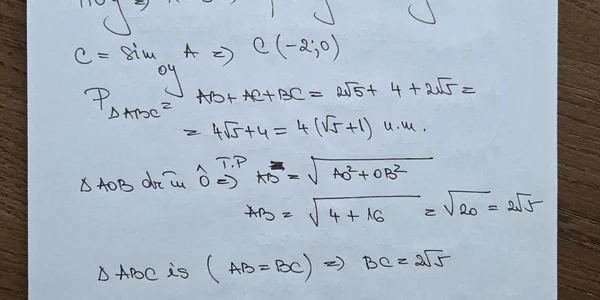 C = sim A ⇒ C(-2;0)
oy
P△ABC = AB + AC + BC = 2√5 + 4 + 2√5 =
= 4√5 + 4 = 4(√5 + 1) u.m.
△AOB dr în Ô ⇒ T.P AB = √AO² + OB²
AB = √4 + 16 = √20 = 2√5
△ABC is (AB = BC) ⇒ BC = 2√5